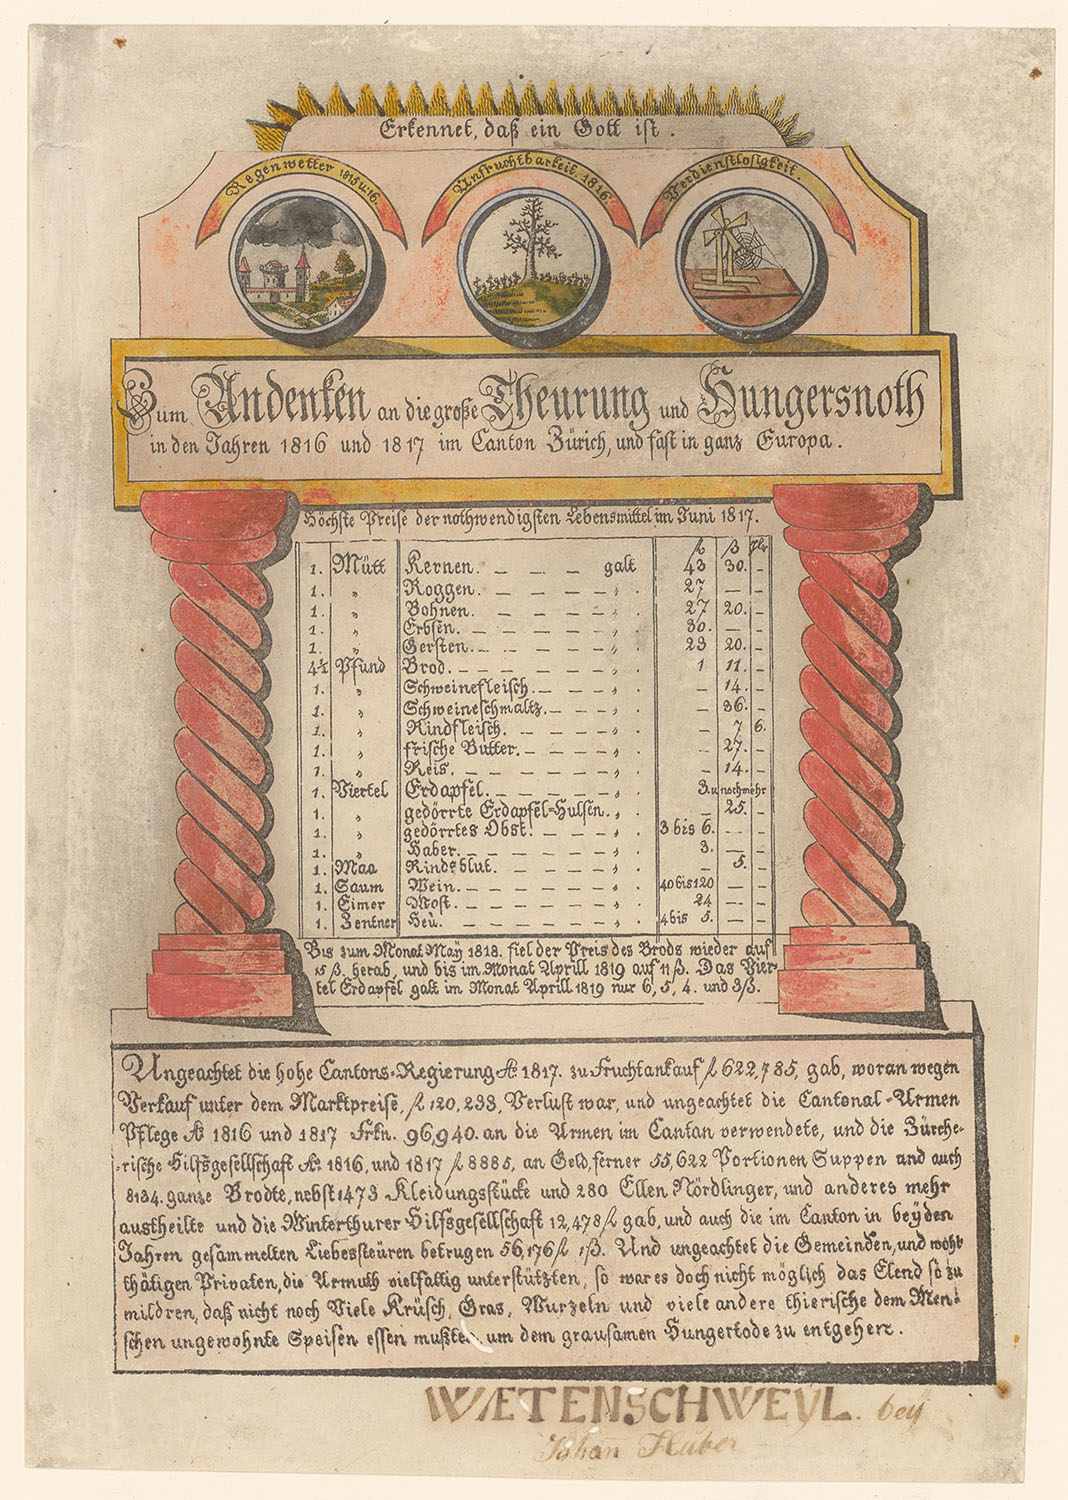 Erkennet, daß ein Gott ist.
Regenwetter 1815 u. 16.
Unfruchtbarkeit. 1816.
Verdienstlosigkeit.
Zum Andenken an die große Theurung und Hungersnoth
in den Jahren 1816 und 1817 im Canton Zürich, und fast in ganz Europa.
Höchste Preise der nothwendigsten Lebensmittel im Juni 1817.
ß
1. Mütt Kernen. — — — galt 43 30. –
1. „ Roggen. — — — — — „ . 27 — –
1. „ Bohnen. — — — — — „ . 27 20. –
1. „ Erbsen. — — — — — „ . 30. — –
1. „ Gersten. — — — — — „ . 23 20. –
4½ Pfund Brod. — — — — — „ . 1 11. –
1. „ Schweinefleisch. — — — „ . – 14. –
1. „ Schweineschmaltz. — — — „ . – 36. –
1. „ Rindfleisch. — — — — „ . – 7 6.
1. „ frische Butter. — — — — „ . – 27. –
1. „ Reis. — — — — — „ . – 14. –
1. Viertel Erdapfel. — — — — „ . 3. u noch mehr
1. „ gedörrte Erdapfel=Hulsen. „ . – 25. –
1. „ gedörrtes Obst. — — — „ . 3 bis 6. — –
1. „ Haber. — — — — — „ . 3. — –
1. Maa Rindsblut. — — — — „ . – 5. –
1. Saum Wein. — — — — — „ . 40 bis 120 — –
1. Eimer Most. — — — — — „ . 24 — –
1. Zentner Heü. — — — — — „ . 4 bis 5. — –
Bis zum Monat May 1818. fiel der Preis des Brods wieder auf
15 ß. herab, und bis im Monat Aprill 1819 auf 11 ß. Das Vier=
tel Erdapfel galt im Monat Aprill 1819 nur 6, 5, 4. und 3 ß.
Ungeachtet die hohe Cantons=Regierung Aº 1817. zu Fruchtankauf fl 622,785, gab, woran wegen
Verkauf unter dem Marktpreise, fl 120,233, Verlust war, und ungeachtet die Cantonal=Armen
Pflege Aº 1816 und 1817 Frkn. 96,940. an die Armen im Cantan verwendete, und die Zürche=
rische Hilfsgesellschaft Aº 1816, und 1817 fl 8885, an Geld, ferner 55,622 Portionen Suppen and auch
8134. ganze Brodte, nebst 1473 Kleidungsstücke und 280 Ellen Nördlinger, und anderes mehr
austheilte und die Winterthurer Hilfsgesellschaft 12,478 fl gab, und auch die im Canton in beÿden
Jahren gesammelten Liebessteüren betrugen 56,176 fl 1 ß. And ungeachtet die Gemeinden, und wohl
thätigen Privaten, die Armuth vielfältig unterstützten, so war es doch nicht möglich das Elend so zu
mildren, daß nicht noch Viele Krüsch, Gras, Wurzeln und viele andere thierische dem Men=
schen ungewohnte Speisen essen mußten um dem grausamen Hungertode zu entgehen.
WÆTENSCHWEYL. beÿ
Johan Huber